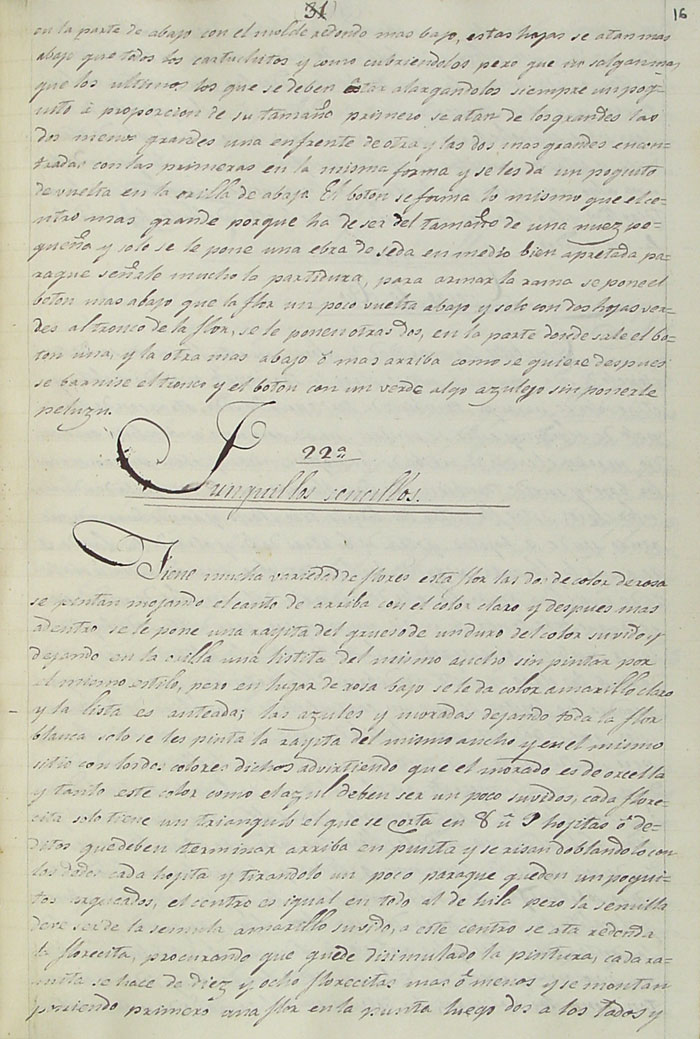 31
16
en la parte de abajo con el molde redondo mas bajo, estas hojas se atan mas
abajo que todos los cartuchitos y como cubriendolos pero que no salgan mas
que los ultimos los que se deben estar alargandolos siempre un poq-
uito á proporcion de su tamaño primero se atan de los grandes las
dos menos grandes una enfrente de otra y las dos mas grandes encon-
tradas con las primeras en la misma forma y se les da un poquito
de vuelta en la orilla de abajo El boton se forma lo mismo que el ce-
ntro mas grande porque ha de ser del tamaño de una nuez pe-
queña y solo se le pone una ebra de seda en medio bien apretada pa-
raque señale mucho la partidura, para armar la rama se pone el
boton mas abajo que la flor un poco vuelta abajo y solo con dos hojas ver-
des al tronco de la flor, se le ponen otras dos, en la parte donde sale el bo-
ton una, y la otra mas abajo ó mas arriba como se quiere despues
se barnise el tronco y el boton con un verde algo azulejo sin ponerle
peluza.
22ª
Junquillos sencillos.
Tiene mucha variedad de flores esta flor las do. de color de rosa
se pintan mojando el canto de arriba con el color claro y despues mas
adentro se le pone una rayita del grueso de un duro del color suvido y
dejando en la orilla una listita del mismo ancho sin pintar por
el mismo estilo, pero en lugar de rosa bajo se le da color amarillo claro
y la lista es anteada; las azules y moradas dejando toda la flor
blanca solo se les pinta la rayita del mismo ancho y en el mismo
sitio con los dos colores dichos advirtiendo que el morado es de orcella
y tanto este color como el azul deben ser un poco suvidos, cada flore-
cita solo tiene un triangulo el que se corta en 8 ú 9 hojitas ó de-
ditos que deben terminar arriba en punta y se risan doblandolo con
los dedos cada hojita y tirandolo un poco paraque queden un poqui-
tos arqueados, el centro es igual en todo al de lila pero la semilla
deve ser de la semula amarillo suvido, a este centro se ata redonda
la florecita, procurando que quede disimulado la pintura, cada ra-
mita se hace de diez y ocho florecitas mas ó menos y se montan
poniendo primero una flor en la punta luego dos a los lados y